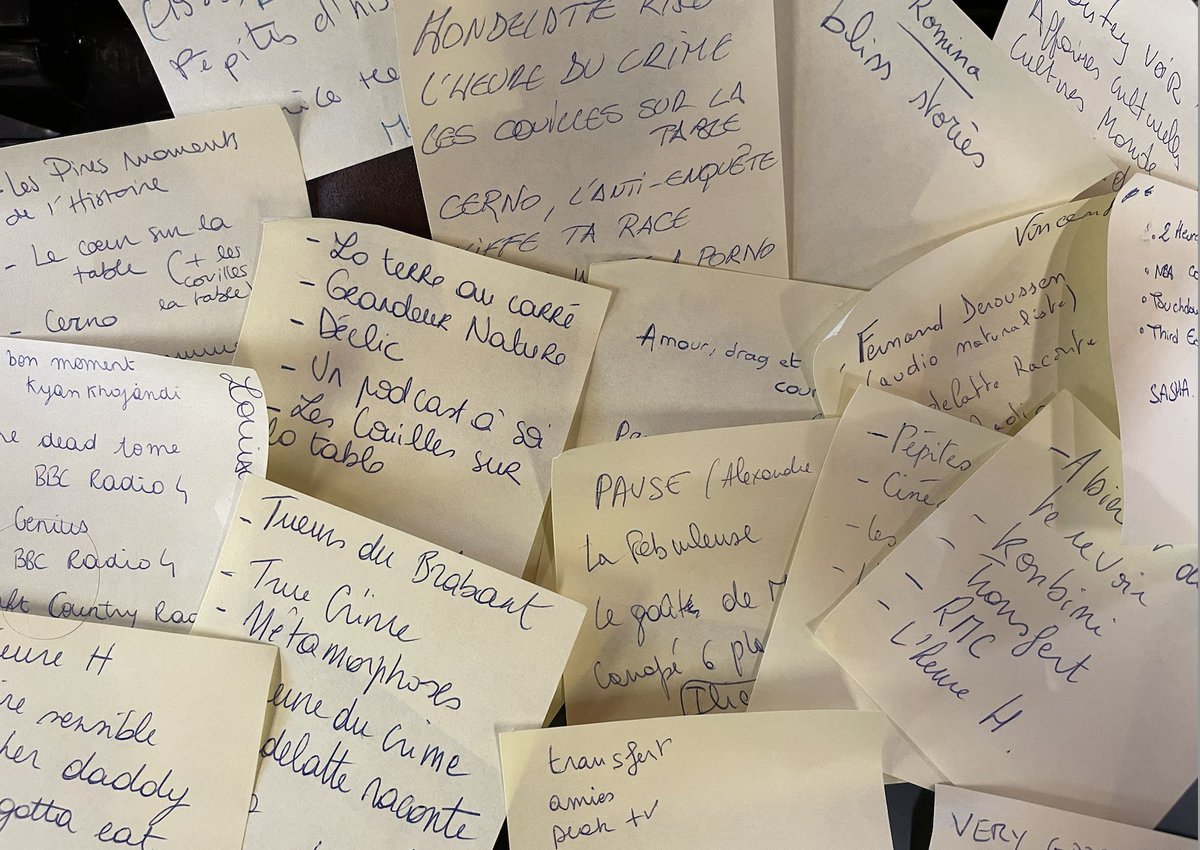 Pépites d'his
HONDELATTE
L'HEURE DU CRIME
LES COUILLES SUR LA
TABLE
CERNO, L'ANTI-ENQUÊTE
TA RACE
PORNO
Romina
bliss stories
VOIR
Affaires culturelles
Cultures Monde
- Les Pires moments
de l'Histoire
- Le cœur sur la
table (+ les
couilles
la table)
- Cerno
- La terre au carré
- Grandeur Nature
- Déclic
- Un podcast à soi
- Les Couilles sur
la table
Amour, drag et
cou
Pa
Vincent
Fernand Deroussen
(audio naturaliste)
delatte Raconte
. 2 Heur
• NBA
• Touchdo
• Third
SASHA.
bon moment
Kyan Khojandi
Louise
dead tome
BBC Radio 4
Genius
BBC Radio 4
Country Rad
- Tueurs du Brabant
- True Crime
- Métamorphoses
eure du crime
delatte raconte
PAUSE (Alexandre
La Fabuleuse
Le goût de M
Canapé 6 pla
- Pépites
- Ciné
- Les
- A bien
te revoir
- Konbini
- Transfert
- RMC
- L'Heure H.
eure H
re sensible
her daddy
gotta eat
transfert
amies
peak TV
VERY